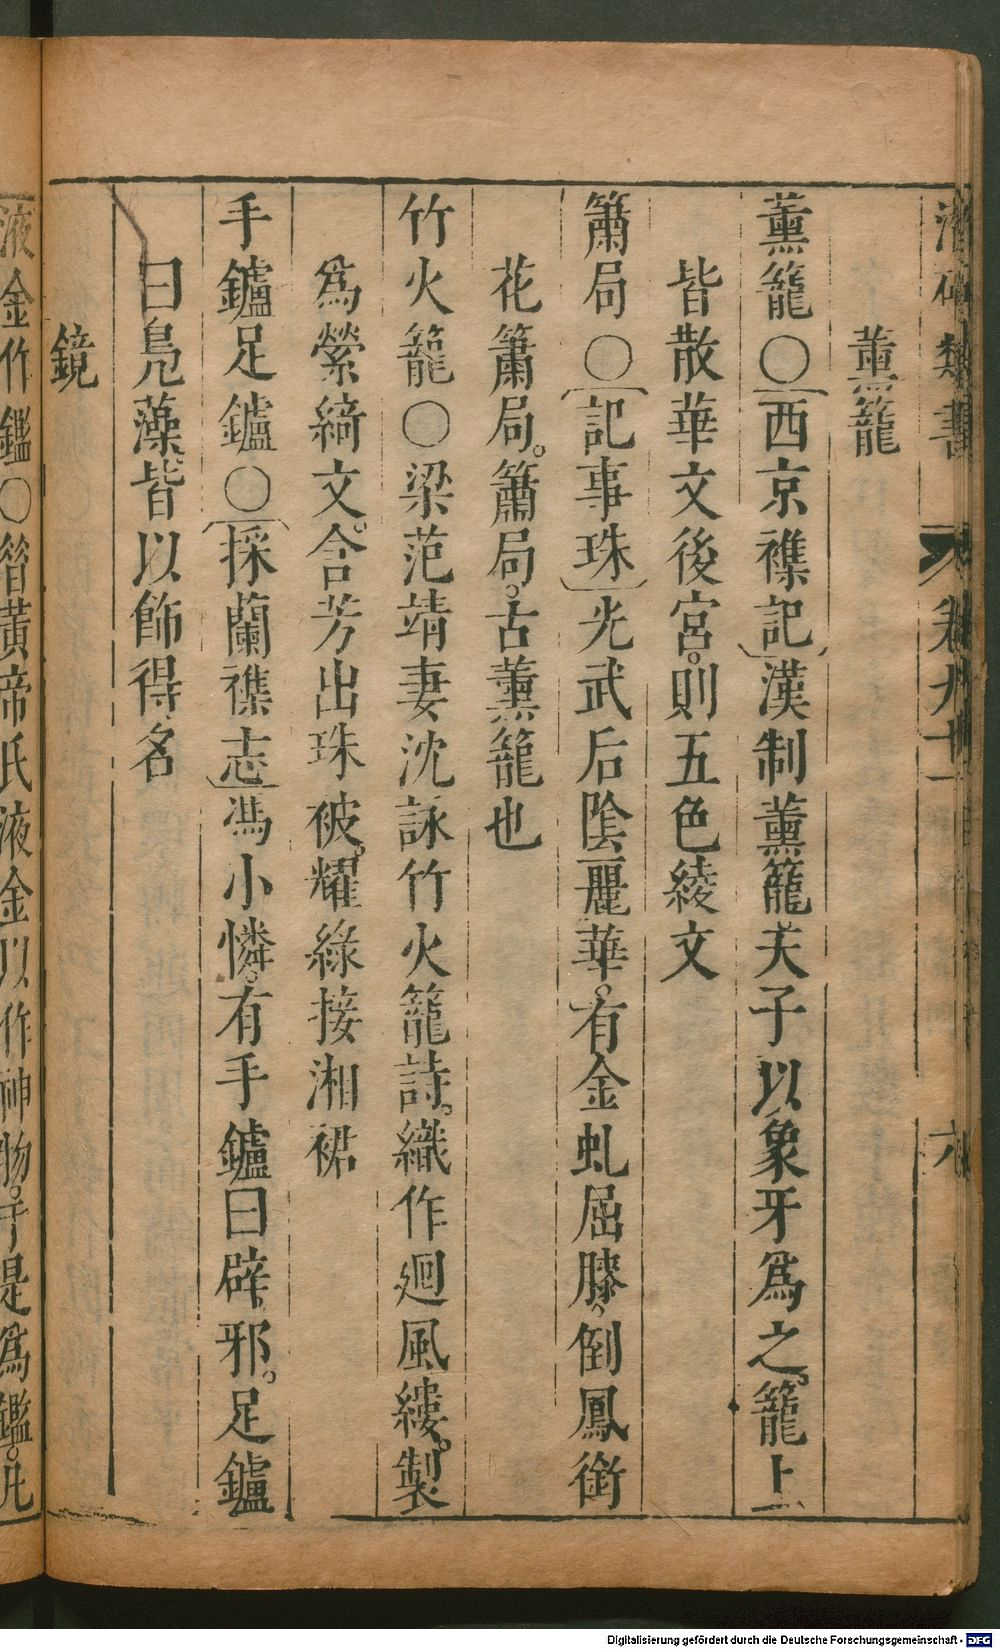 潛確類書 卷九十一 六
薰籠
薰籠○西京襍記漢制薰籠天子以象牙爲之。籠上
皆散華文後宮。則五色綾文
簫局○記事珠光武后陰麗華。有金虬屈膝。倒鳳銜
花簫局。簫局。古薰籠也
竹火籠○梁范靖妻沈詠竹火籠詩。織作廻風縷。製
爲縈綺文。含芳出珠被。耀綠接湘裙
手鑪足鑪○採蘭襍志馮小憐。有手鑪曰辟邪。足鑪
曰鳧藻。皆以飾得名
鏡
液金作鑑○昝黃帝氏液金以作神物。于是爲鑑。凡
Digitalisierung gefördert durch die Deutsche Forschungsgemeinschaft - DFG